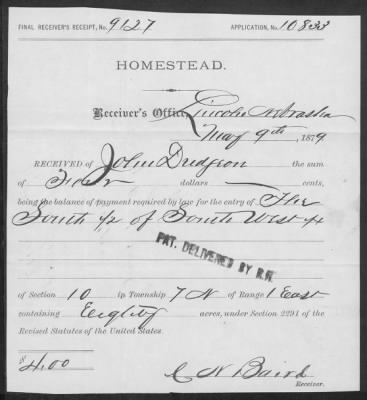 FINAL RECEIVER'S RECEIPT, No. 9127 APPLICATION, No. 10833
HOMESTEAD.
Receiver's Office, Lincoln Nebraska
May 9th, 1879
RECEIVED OF John Dudgeon the sum
of Four dollars — cents,
being the balance of payment required by law for the entry of The
South 1/2 of South West 4
PAT. DELIVERED BY R.R.
of Section 10 in Township 7 N of Range 1 East
containing Eighty acres, under Section 2291 of the
Revised Statutes of the United States.
$4.00
C N Baird
Receiver.